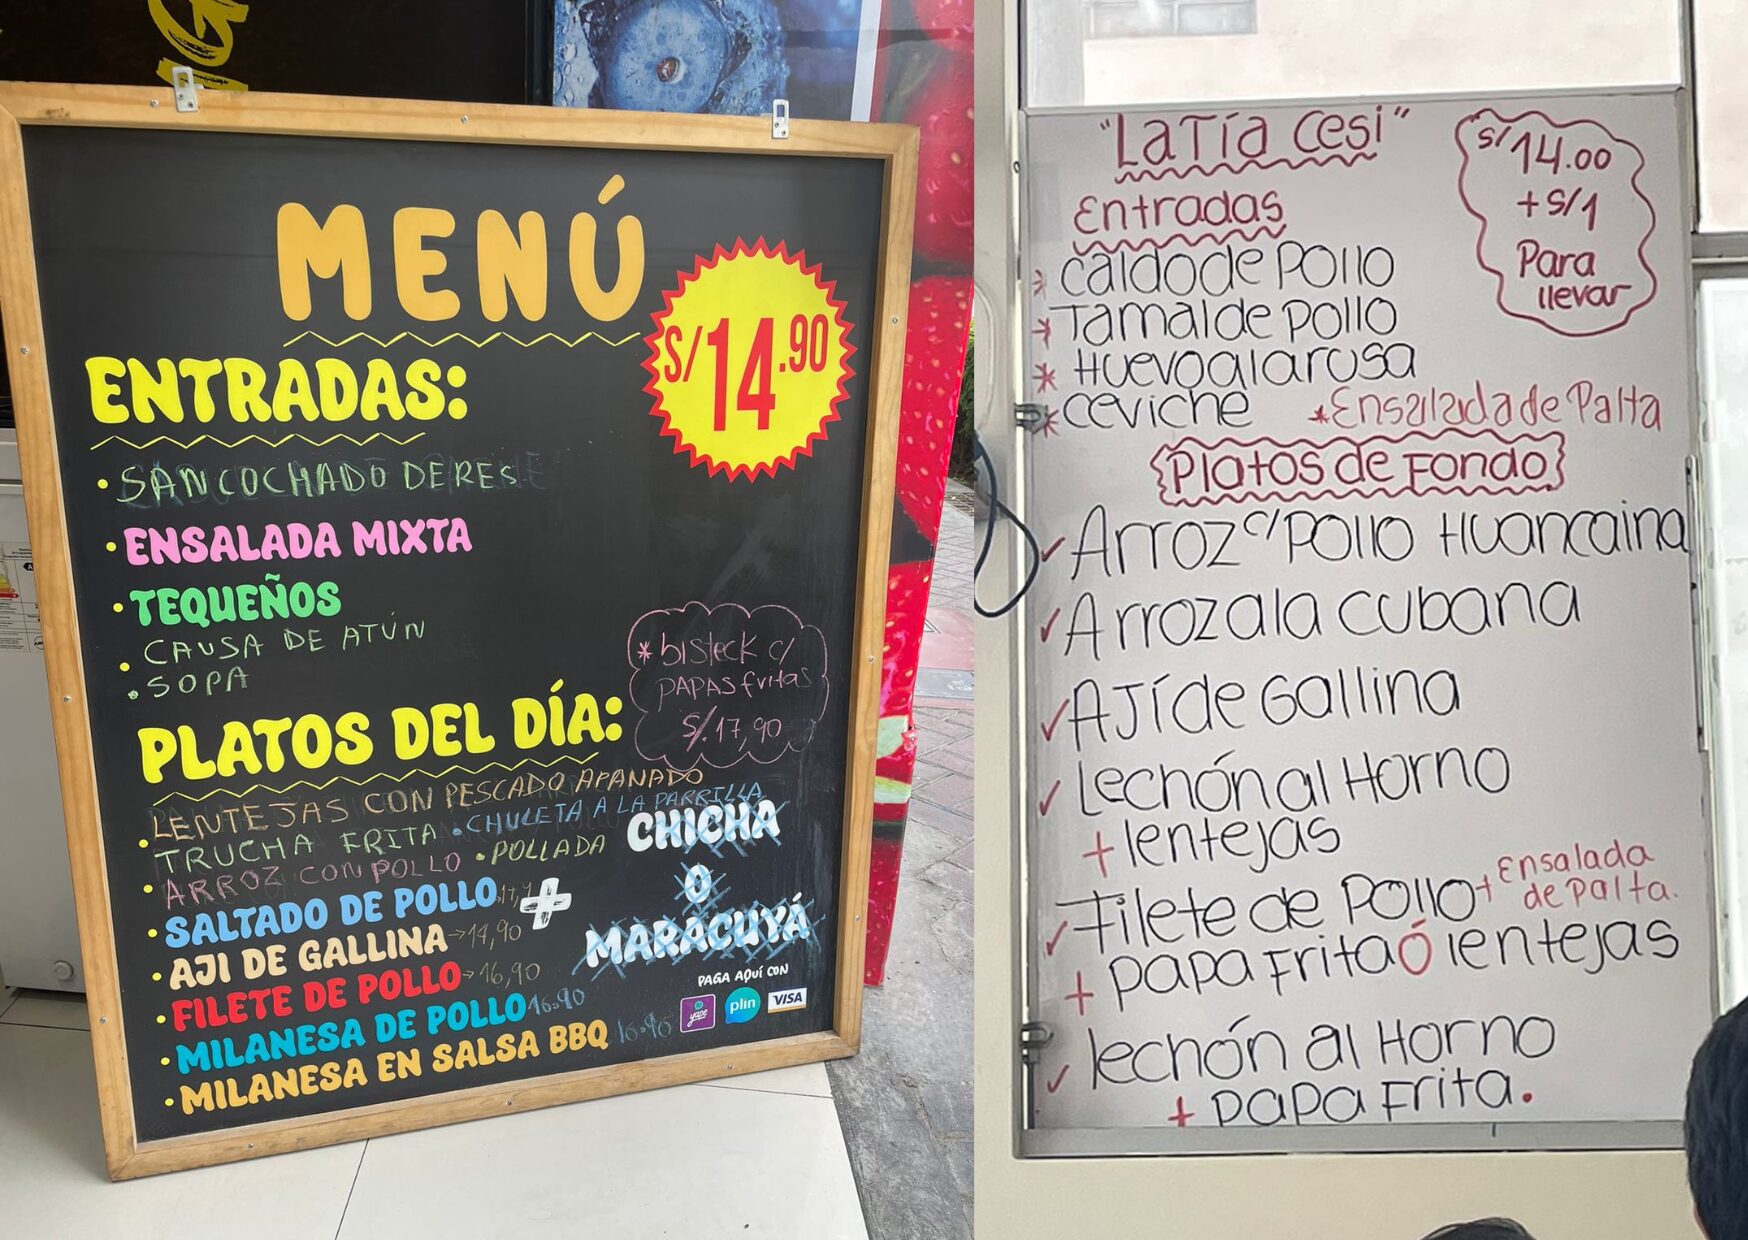 MENÚ
S/14.90
ENTRADAS:
• SANCOCHADO DE RES
• ENSALADA MIXTA
• TEQUEÑOS
• CAUSA DE ATÚN
• SOPA
* bisteck c/
PAPAS fritas
S/.17,90
PLATOS DEL DÍA:
• LENTEJAS CON PESCADO APANADO
TRUCHA FRITA • CHULETA A LA PARRILLA
• ARROZ CON POLLO • POLLADA
• SALTADO DE POLLO
• AJI DE GALLINA →14,90
• FILETE DE POLLO →16,90
• MILANESA DE POLLO 16.90
• MILANESA EN SALSA BBQ 16.90
+
CHICHA
O
MARACUYÁ
PAGA AQUÍ CON
yape plin VISA
"LA TÍA CESI"
S/14.00
+ S/1
Para
llevar
Entradas
* caldo de Pollo
* Tamal de Pollo
* Huevo a la rusa
* ceviche * Ensalada de Palta
Platos de Fondo
✓ Arroz c/ Pollo Huancaina
✓ Arroz a la cubana
✓ AJÍ de Gallina
✓ Lechón al Horno
+ lentejas
✓ Filete de Pollo + Ensalada
de Palta.
+ papa Frita Ó lentejas
✓ lechón al Horno
+ papa Frita.